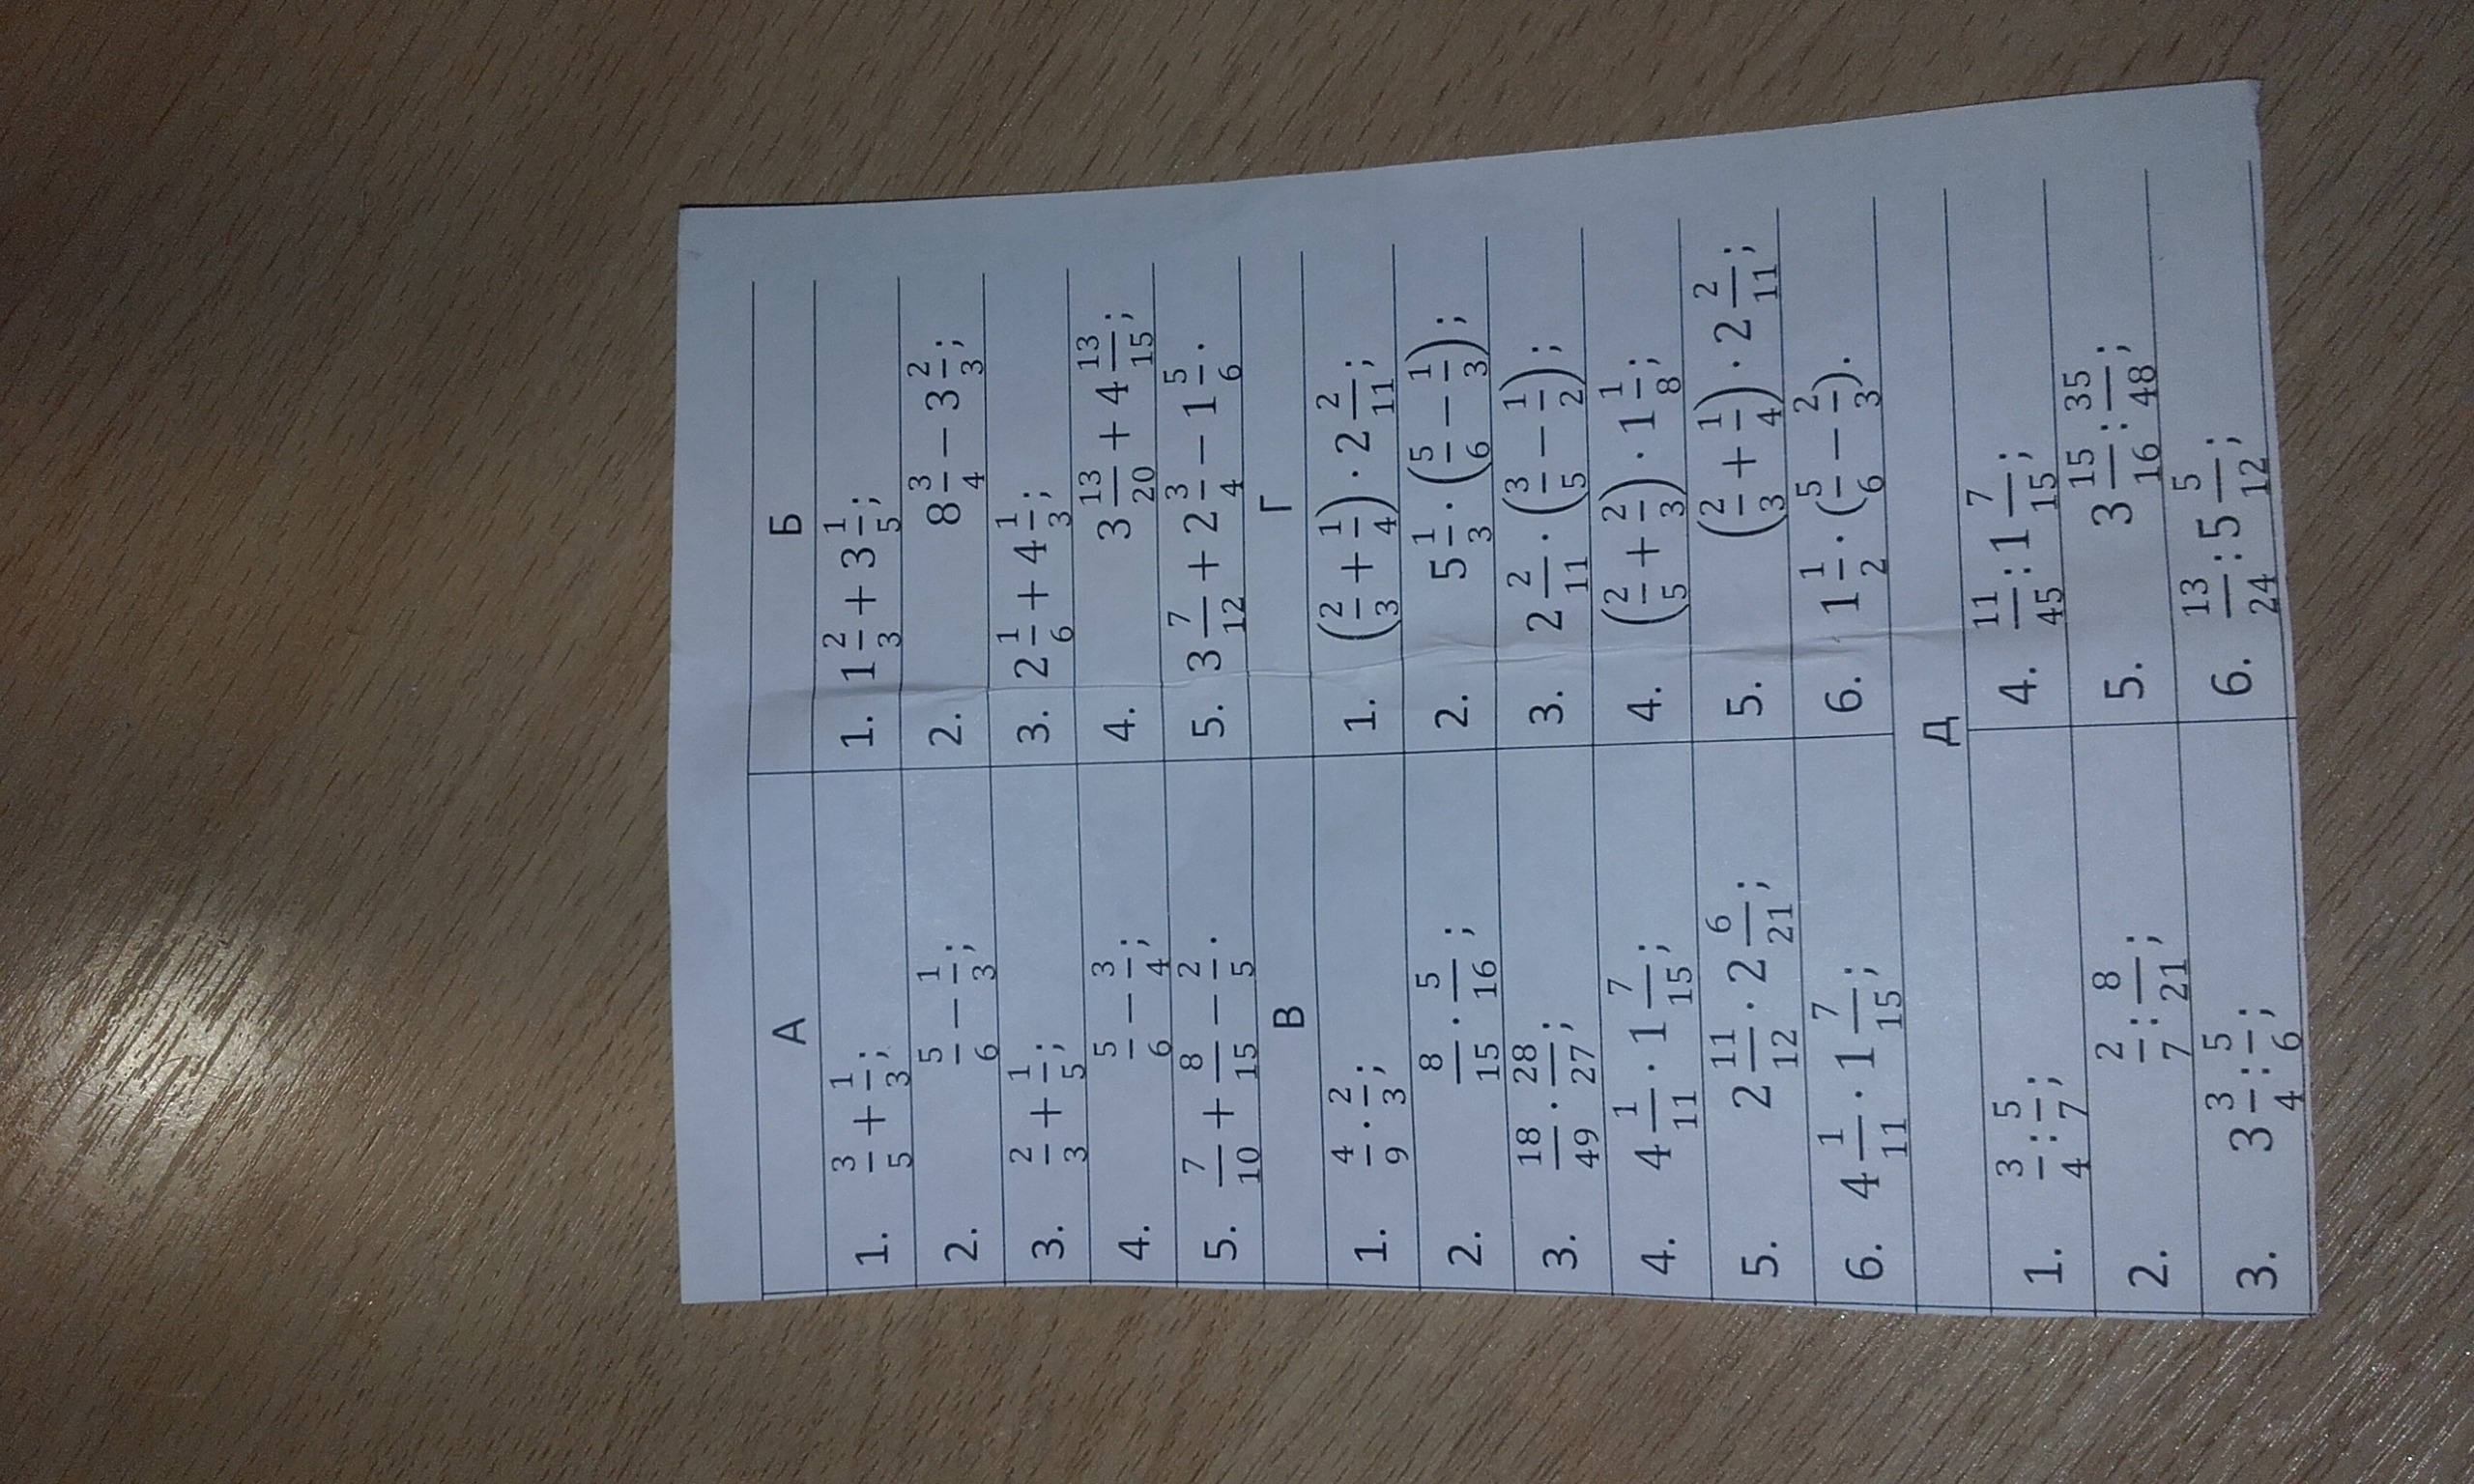 А Б
1. 3/5 + 1/3; 1. 1 2/3 + 3 1/5;
2. 5/6 − 1/3; 2. 8 3/4 − 3 2/3;
3. 2/3 + 1/5; 3. 2 1/6 + 4 1/3;
4. 5/6 − 3/4; 4. 3 13/20 + 4 13/15;
5. 7/10 + 8/15 − 2/5. 5. 3 7/12 + 2 3/4 − 1 5/6.
В Г
1. 4/9 · 2/3; 1. (2/3 + 1/4) · 2 2/11;
2. 8/15 · 5/16; 2. 5 1/3 · (5/6 − 1/3);
3. 18/49 · 28/27; 3. 2 2/11 · (3/5 − 1/2);
4. 4 1/11 · 1 7/15; 4. (2/5 + 2/3) · 1 1/8;
5. 2 11/12 · 2 6/21; 5. (2/3 + 1/4) · 2 2/11;
6. 4 1/11 · 1 7/15; 6. 1 1/2 · (5/6 − 2/3).
Д
1. 3/4 : 5/7; 4. 11/45 : 1 7/15;
2. 2/7 : 8/21; 5. 3 15/16 : 35/48;
3. 3 3/4 : 5/6; 6. 13/24 : 5 5/12;